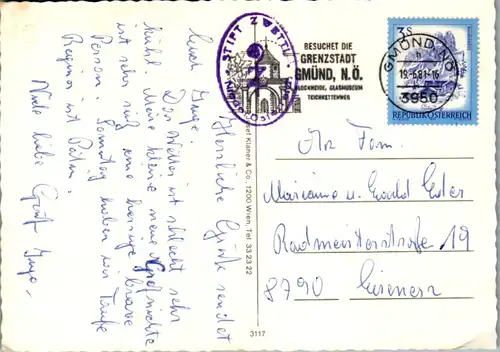 Herzliche Grüße sendet
Euch Inge.
Das Wetter ist schlecht sehr
kühl. Meine kleine neue Großnichte
ist sehr süß, eine herzige brave
Person. Sonntag haben wir Taufe
Regina ist Patin.
Viele liebe Grüße Inge.
STIFT ZWETTL
BESUCHET DIE
GRENZSTADT
GMÜND, N.Ö.
BLOCKHEIDE, GLASMUSEUM
TEICHKETTENWEG
GMÜND, NÖ
19.-6.81-16
3950
3S
REPUBLIK ÖSTERREICH
Josef Klaner & Co., 1200 Wien, Tel. 33 23 22
3117
An Fam.
Marianne u. Ewald Eder
Radmeisterstraße 19
8790 Eisenerz